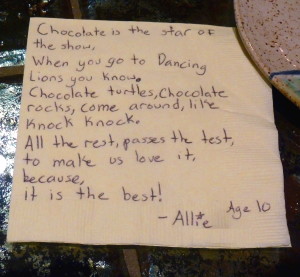 Chocolate is the star of
the show,
When you go to Dancing
Lions you know.
Chocolate turtles, Chocolate
rocks, come around, like
Knock Knock.
All the rest, passes the test,
to make us love it,
because,
it is the best!
- Allie Age 10